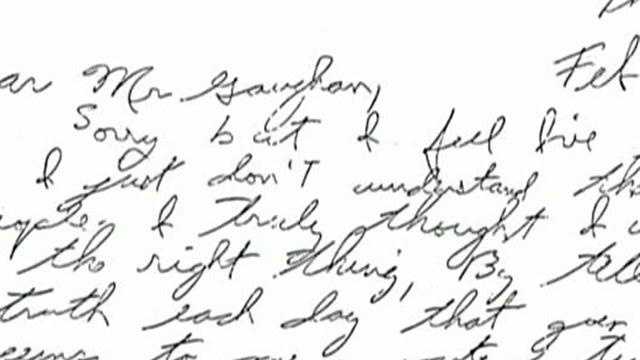 ar Mr Gaughan, Feb
Sorry but I feel I've
I just don't understand tho
I truly thought I
tho right thing, By tele
truth each day that goes
to